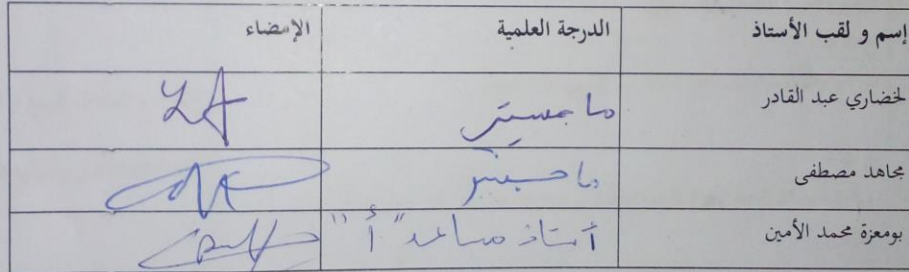 إسم و لقب الأستاذ الدرجة العلمية الإمضاء
لخضاري عبد القادر ماجستير
مجاهد مصطفى ماجستير
بومعزة محمد الأمين أستاذ مساعد "أ"